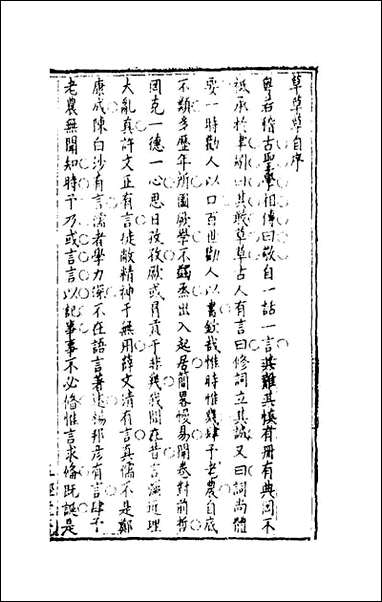 草草草自序
粤若稽古聖賢相傳曰敬自一話一言其難其慎有册有典罔不
祗承於聿則以其敢草草古人有言曰修詞立其誠又曰詞尚體
要一時勸人以口百世勸人以書欽哉惟時惟幾肆予老農自底
不類多歷年所圖厥學不蠲烝出入起居簡畧慢易開卷對前哲
罔克一德一心思日孜孜厥或胥貢于非幾我聞在昔言彌近理
大亂真許文正有言徒敝精神于無用薛文清有言真儒不是鄭
康成陳白沙有言儒者學力深不在語言著述楊邦彦有言肆予
老農無聞知時予乃或言言以記事事不必脩惟言求脩既誕是